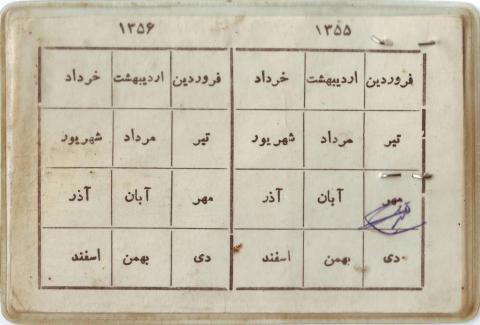 ۱۳۵۵ ۱۳۵۶
فروردین اردیبهشت خرداد فروردین اردیبهشت خرداد
تیر مرداد شهریور تیر مرداد شهریور
مهر آبان آذر مهر آبان آذر
دی بهمن اسفند دی بهمن اسفند